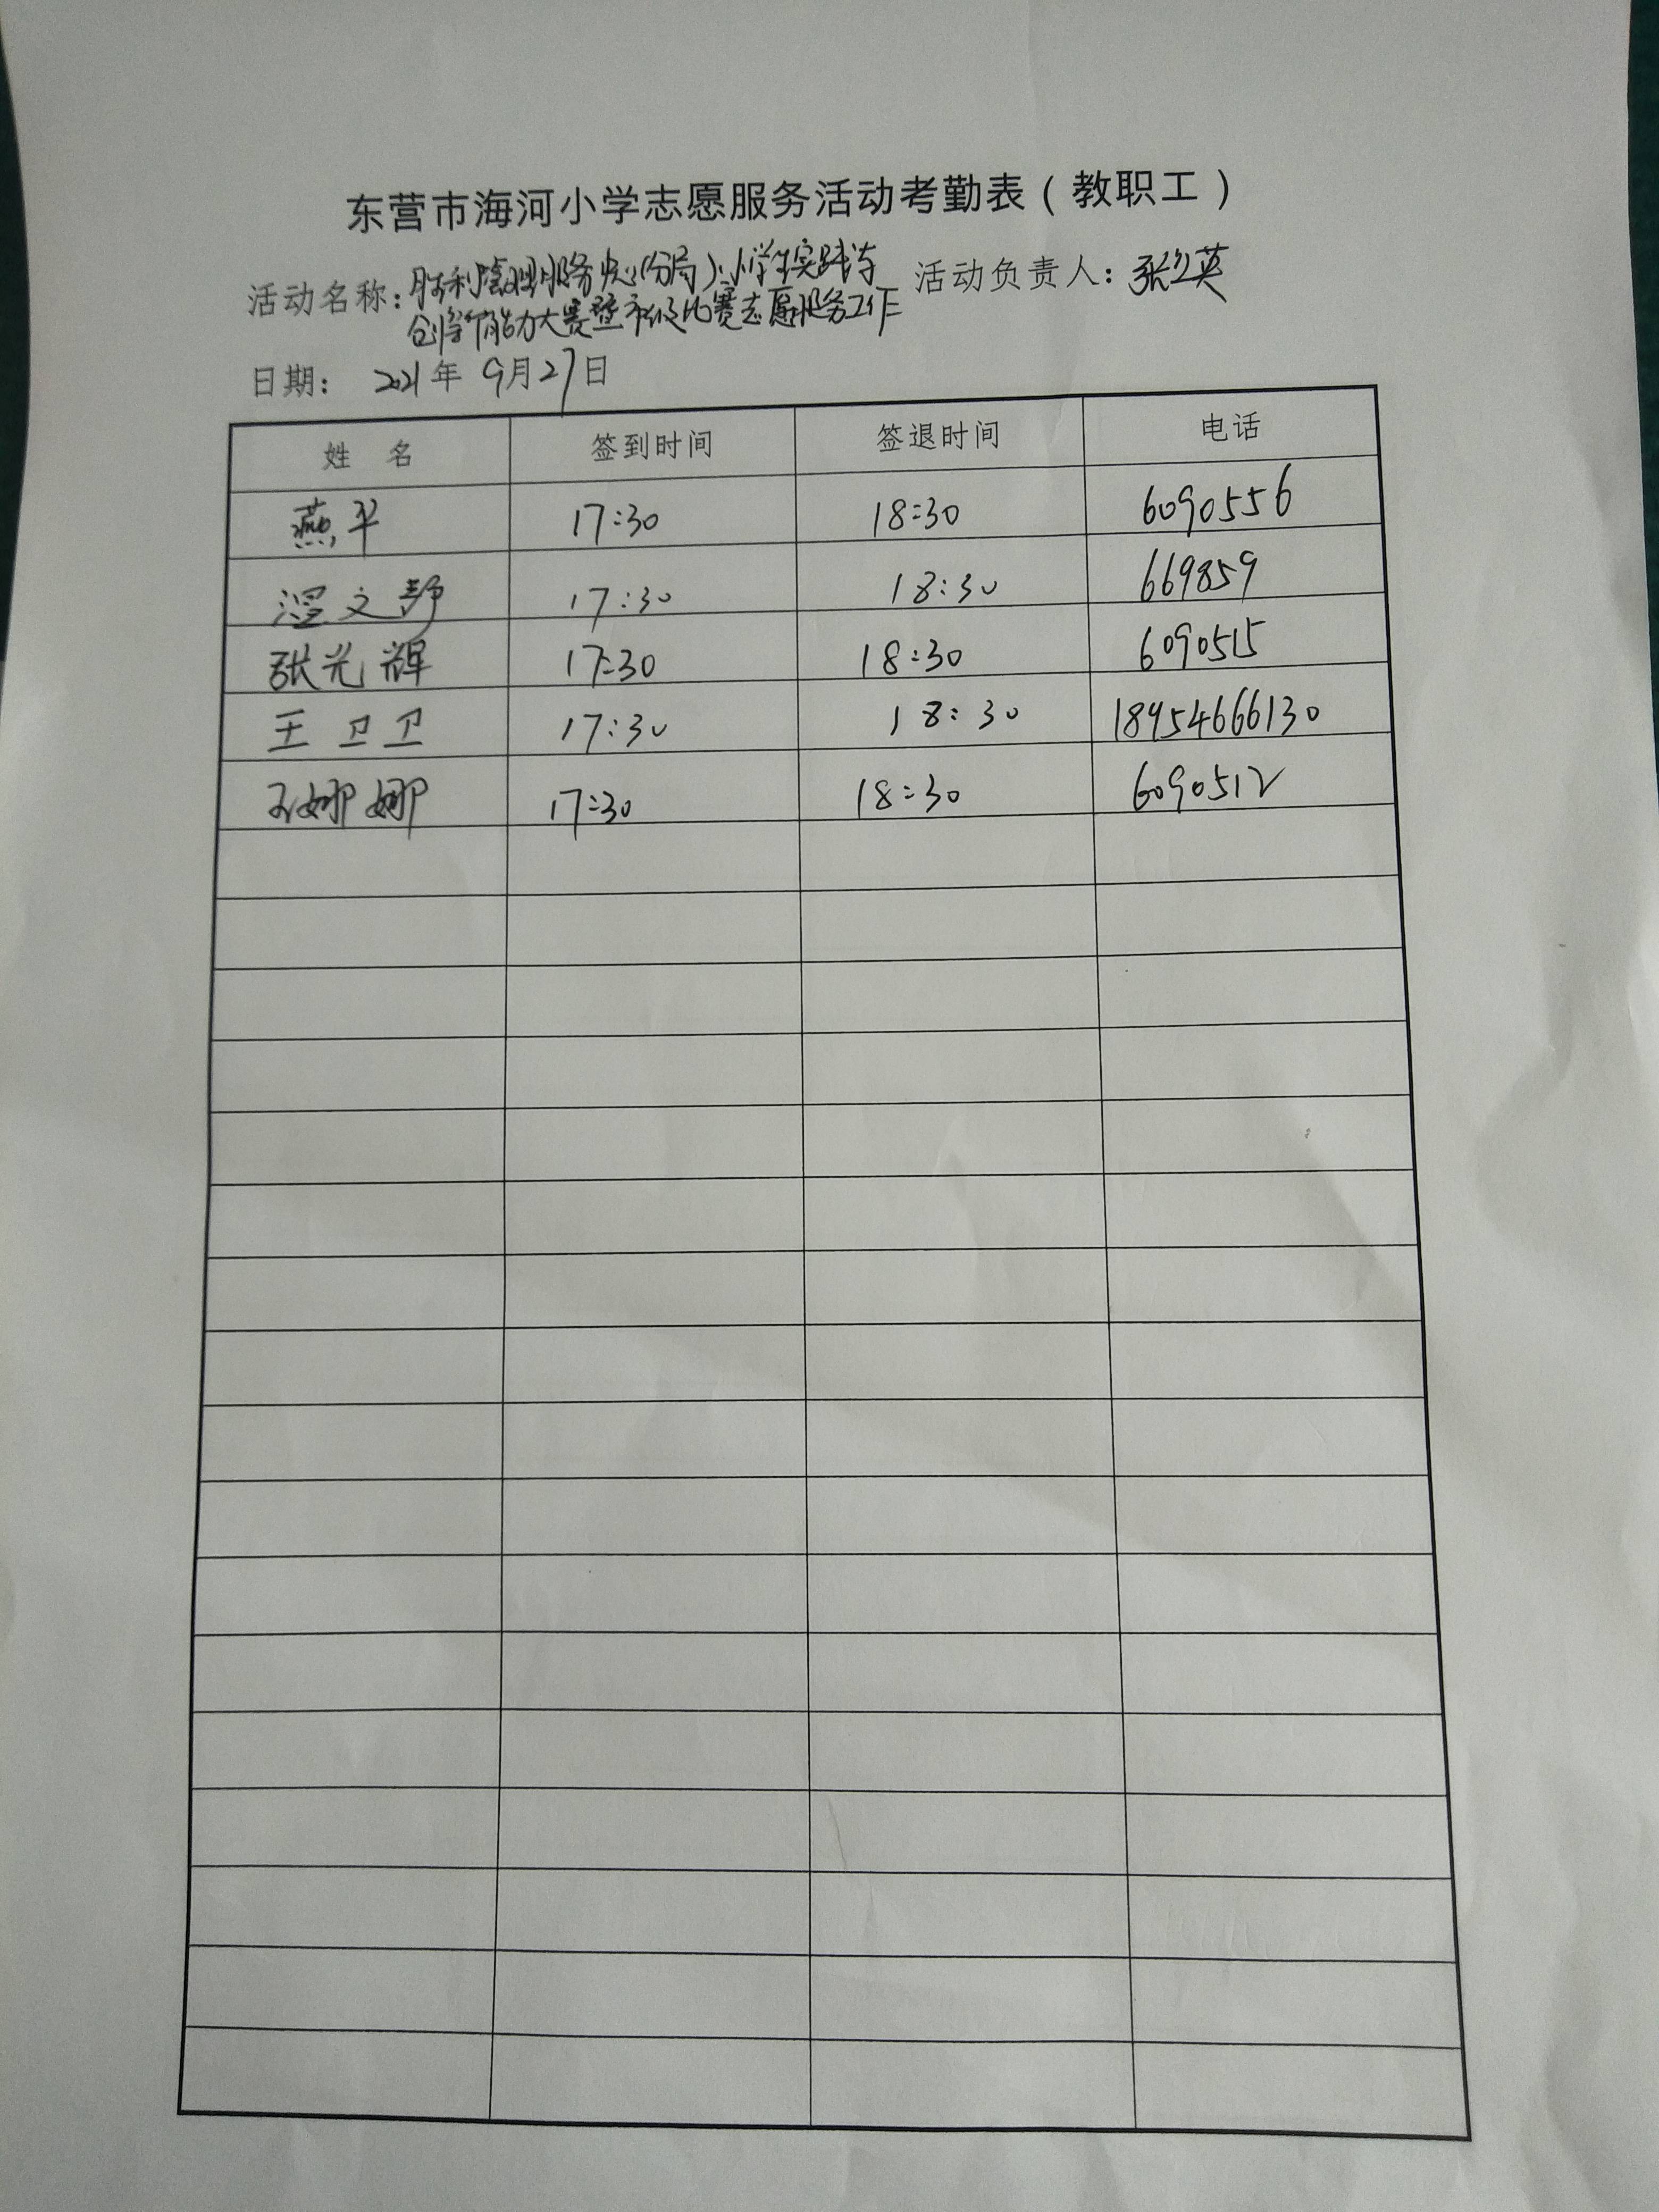 东营市海河小学志愿服务活动考勤表（教职工）
活动名称：胜利管理服务中心(分局)小学生实践与 活动负责人：张立英
创新能力大赛暨市级比赛志愿服务工作
日期： 2021年 9月27日
姓 名 签到时间 签退时间 电话
燕平 17:30 18:30 6090556
温文静 17:30 18:30 669859
张光辉 17:30 18:30 6090515
王卫卫 17:30 18:30 18954666130
娜娜 17:30 18:30 6090512